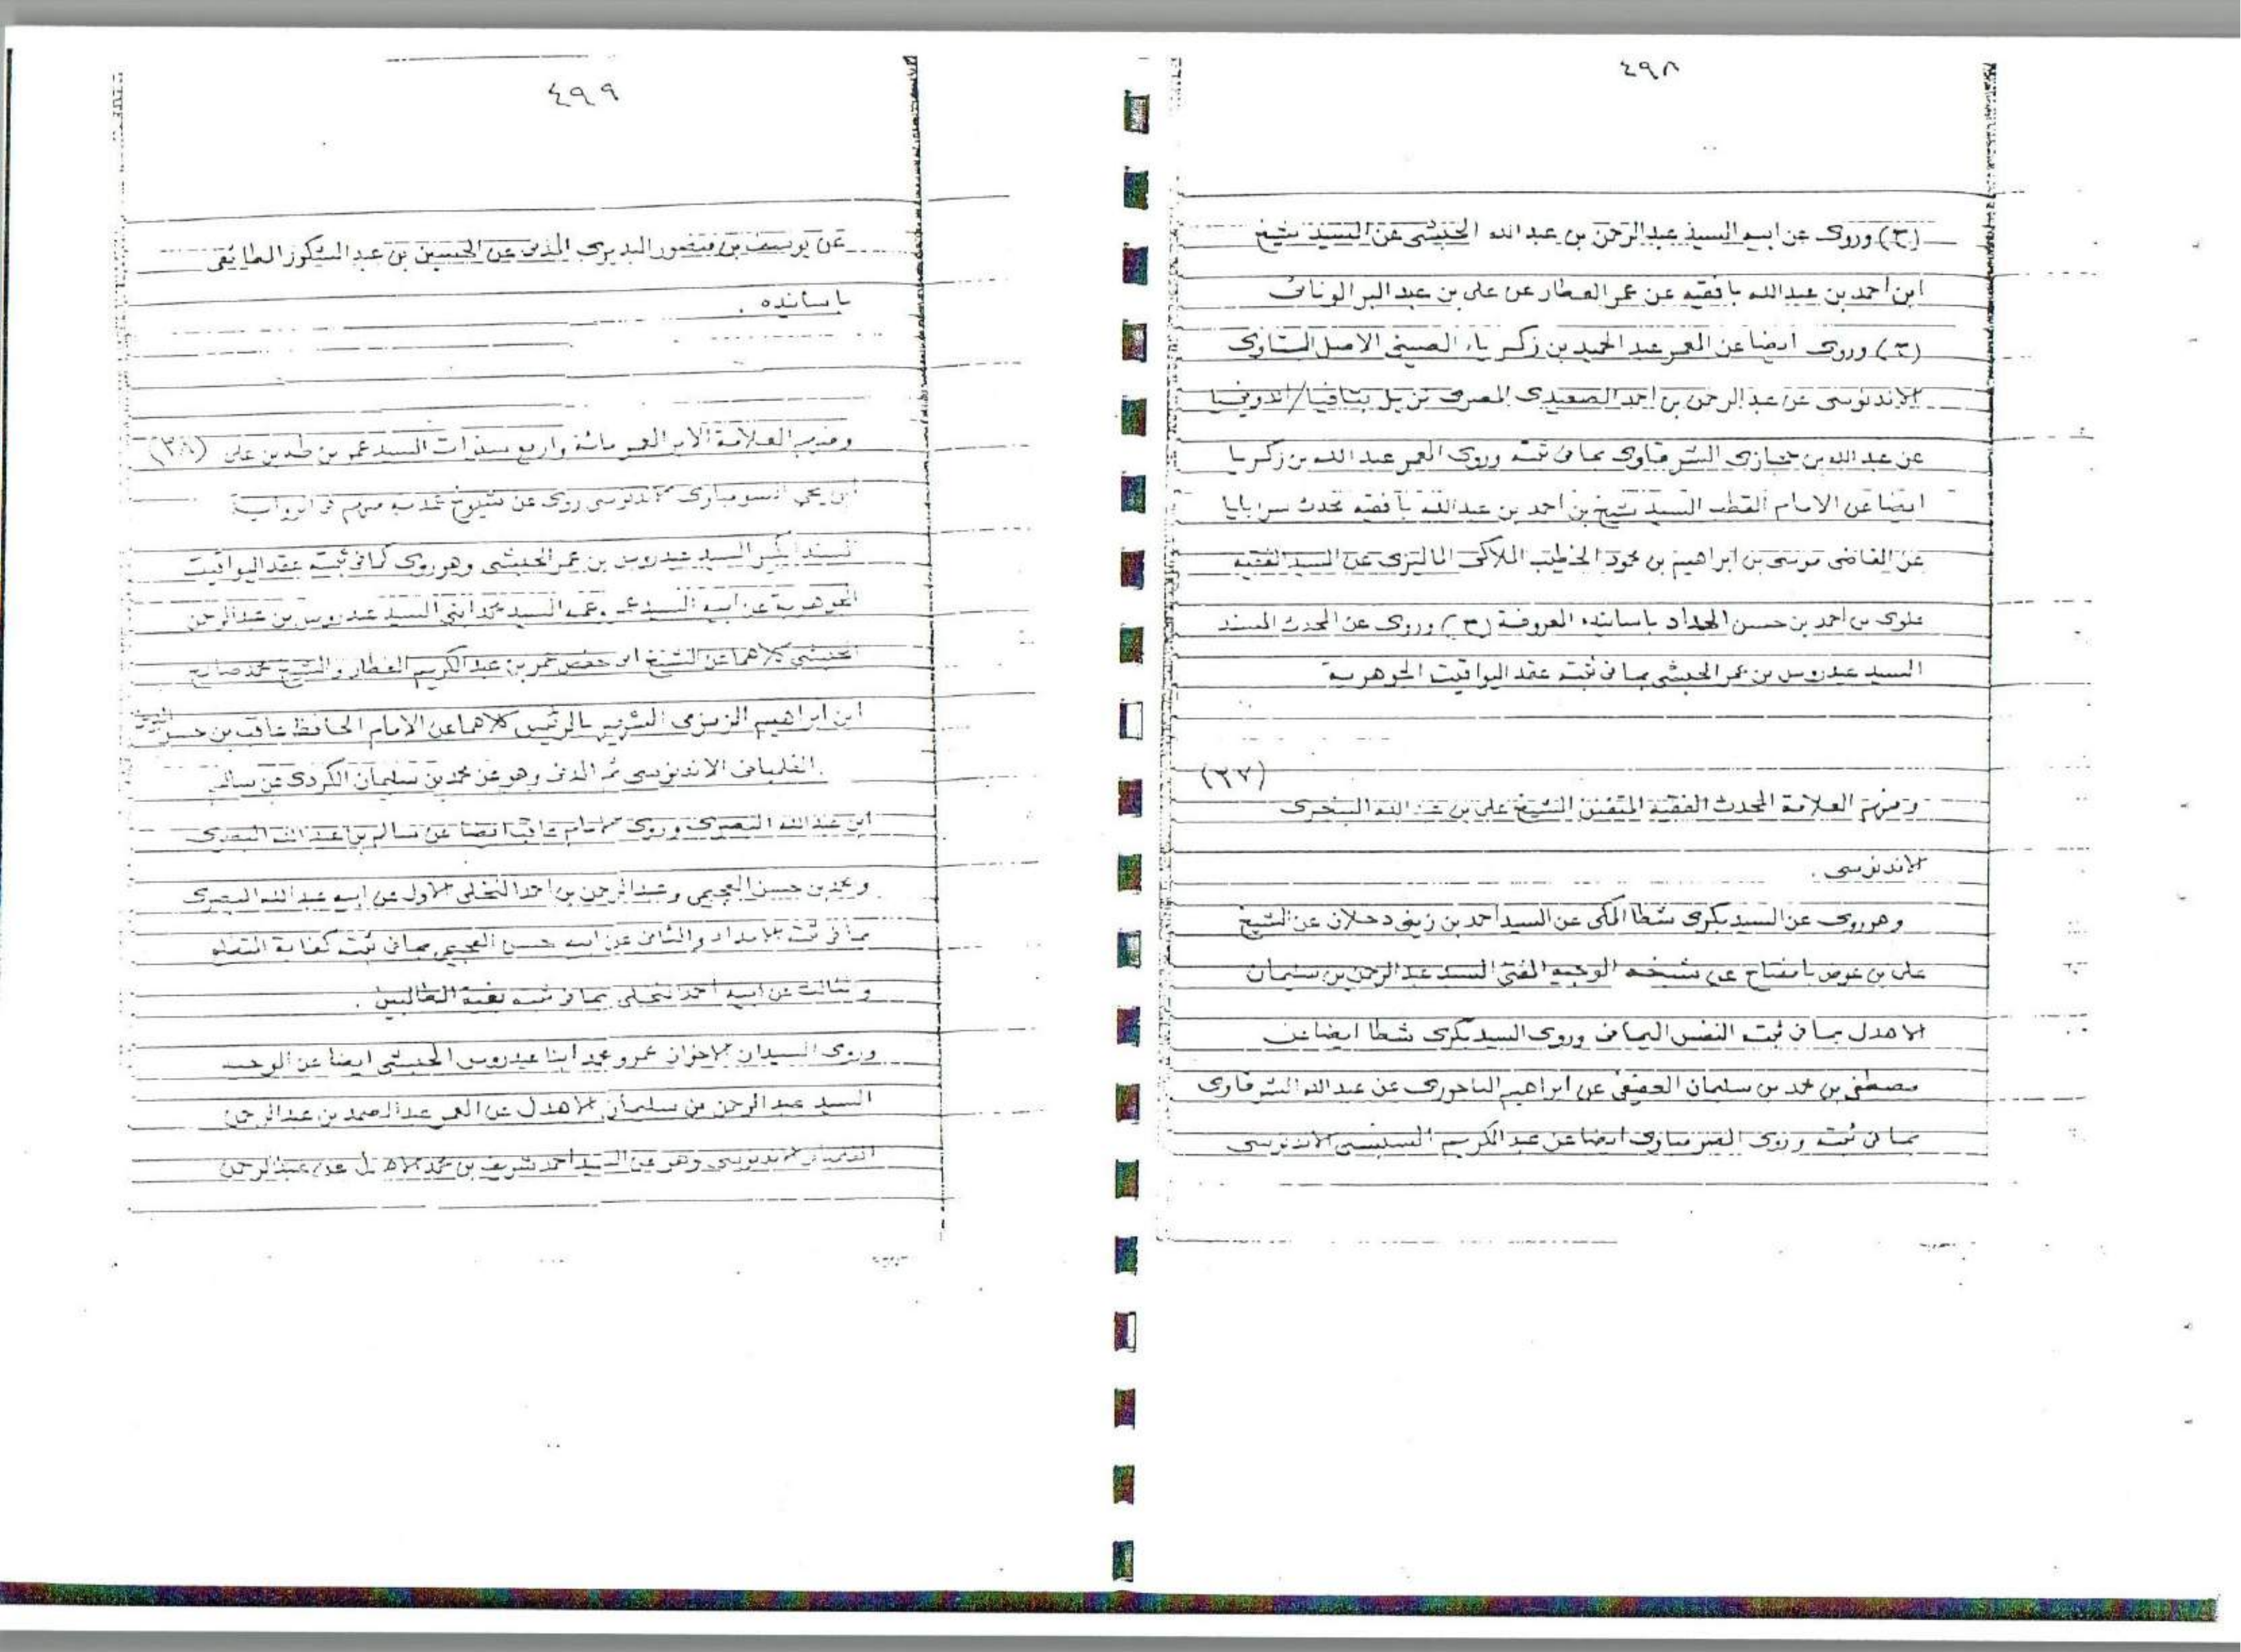 ٤٩٨
(ح) وروى عن ابيه السيد عبد الرحمن بن عبد الله الحبشى عن السيد شيخ
ابن أحمد بن عبد الله بافقيه عن عمر العطار عن على بن عبد البر الونائى
(ح) وروى ايضا عن المعمر عبد الحميد بن زكرياء الصينى الاصل
الاندنوسى عن عبد الرحمن بن احمد الصعيدى المصرى نزيل بتافيا/اندونيسيا
عن عبد الله بن حجازى الشرقاوى بما فى ثبته وروى المعمر عبد الله بن زكريا
ايضا عن الامام القطب السيد شيخ بن احمد بن عبد الله بافقيه محدث سرابايا
عن القاضى موسى بن ابراهيم بن محمود الخطيب الملاكى الماليزى عن السيد الفقيه
علوى بن أحمد بن حسن الحداد باسانيده المعروفة (ح) وروى عن المحدث المسند
السيد عيدروس بن عمر الحبشى بما فى ثبته عقد اليواقيت الجوهرية
(٣٧)
ومنهم العلامة المحدث الفقيه المتفنن الشيخ على بن عبد الله البنجرى
الاندنوسى .
وهو روى عن السيد بكرى شطا المكى عن السيد أحمد بن زينى دحلان عن الشيخ
على بن عوض بافضاح عن شيخه الوجيه المفتى السيد عبد الرحمن بن سليمان
الاهدل بما فى ثبته النفس اليمانى وروى السيد بكرى شطا ايضا عن
مصطفى بن محمد بن سلمان العفيفى عن ابراهيم الباجورى عن عبد الله الشرقاوى
بما فى ثبته وروى ايضا عن عبد الكريم السمبسى الاندنوسى
٤٩٩
عن يوسف بن منصور البديرى المدنى عن الحسين بن عبد الشكور الطائفى
باسانيده .
ومنهم العلامة الابر المعمر مائة واربع سنوات السيد عمر بن طه بن على (٣٨)
ابن يحيى الاندنوسى روى عن شيوخ عدة منهم فى الرواية
المسند الكبير السيد عيدروس بن عمر الحبشى وهو روى كما فى ثبته عقد اليواقيت
الجوهرية عن ابيه السيد عمر وعمه السيد محمد ابنى السيد عيدروس بن عبد الرحمن
الحبشى كلاهما عن الشيخ ابى حفص عمر بن عبد الكريم العطار والشيخ محمد صالح
ابن ابراهيم الزمزمى الشهير بالرئيس كلاهما عن الامام الحافظ عاقب بن حسن
الفلمبانى الاندنوسى ثم المدنى وهو عن محمد بن سليمان الكردى عن سالم
ابن عبد الله البصرى وروى الامام عاقب ايضا عن سالم بن عبد الله البصرى
ومحمد بن حسن العجيمى وعبد الرحمن بن احمد النخلى الاول عن ابيه عبد الله البصرى
بما فى ثبته الامداد والثانى عن ابيه حسن العجيمى بما فى ثبته كفاية
والثالث عن ابيه احمد النخلى بما فى ثبته بغية الطالبين .
وروى السيدان الاخوان عمر ومحمد ابنا عيدروس الحبشى ايضا عن الوجيه
السيد عبد الرحمن بن سليمان الاهدل عن المعمر عبد الصمد بن عبد الرحمن
الفلمبانى الاندنوسى وهو عن السيد احمد شريف بن محمد الاهدل عن عبد الرحمن